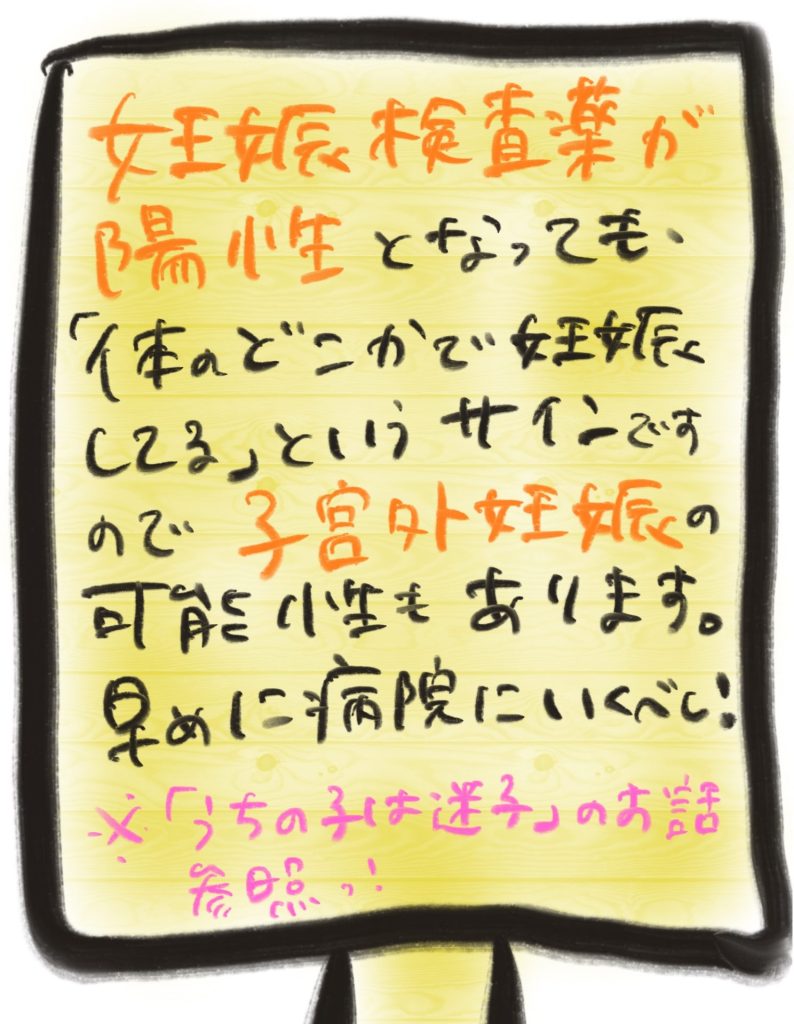 妊娠検査薬が
陽性となっても、
「体のどこかで妊娠
してる」というサインです
ので子宮外妊娠の
可能性もあります。
早めに病院にいくべし!
※「うちの子は迷子」のお話
参照っ!